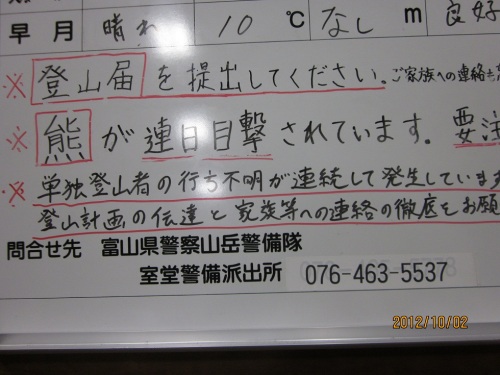 早月 晴れ 10 ℃ なし m 良好
※ 登山届 を提出してください。ご家族への連絡も
※ 熊 が 連日目撃 されています。要注
※ 単独登山者の行方不明が連続して発生していま
登山計画の伝達と家族等への連絡の徹底をお願
問合せ先 富山県警察山岳警備隊
室堂警備派出所 076-463-5537
2012/10/02